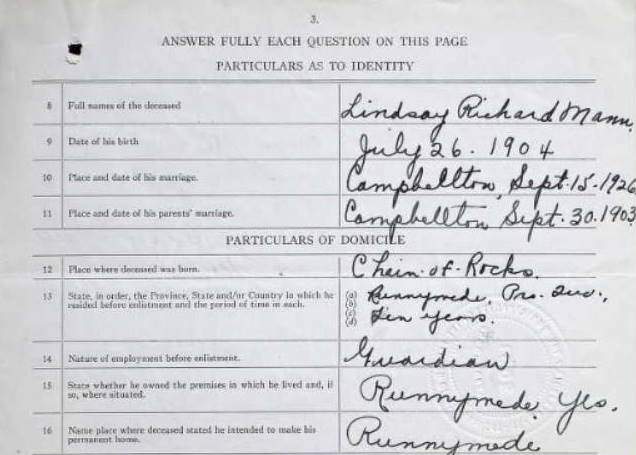 3.
ANSWER FULLY EACH QUESTION ON THIS PAGE
PARTICULARS AS TO IDENTITY
8 Full names of the deceased Lindsay Richard Mann.
9 Date of his birth July 26. 1904
10 Place and date of his marriage. Campbellton, Sept. 15-1926
11 Place and date of his parents' marriage. Campbellton Sept. 30. 1903
PARTICULARS OF DOMICILE
12 Place where deceased was born. Chain-of-Rocks.
13 State, in order, the Province, State and/or Country in which he (a) Runnymede, Pro. Que.,
resided before enlistment and the period of time in each. (b)
(c) Ten years.
(d)
14 Nature of employment before enlistment. Guardian
15 State whether he owned the premises in which he lived and, if
so, where situated. Runnymede, Yes.
16 Name place where deceased stated he intended to make his
permanent home. Runnymede